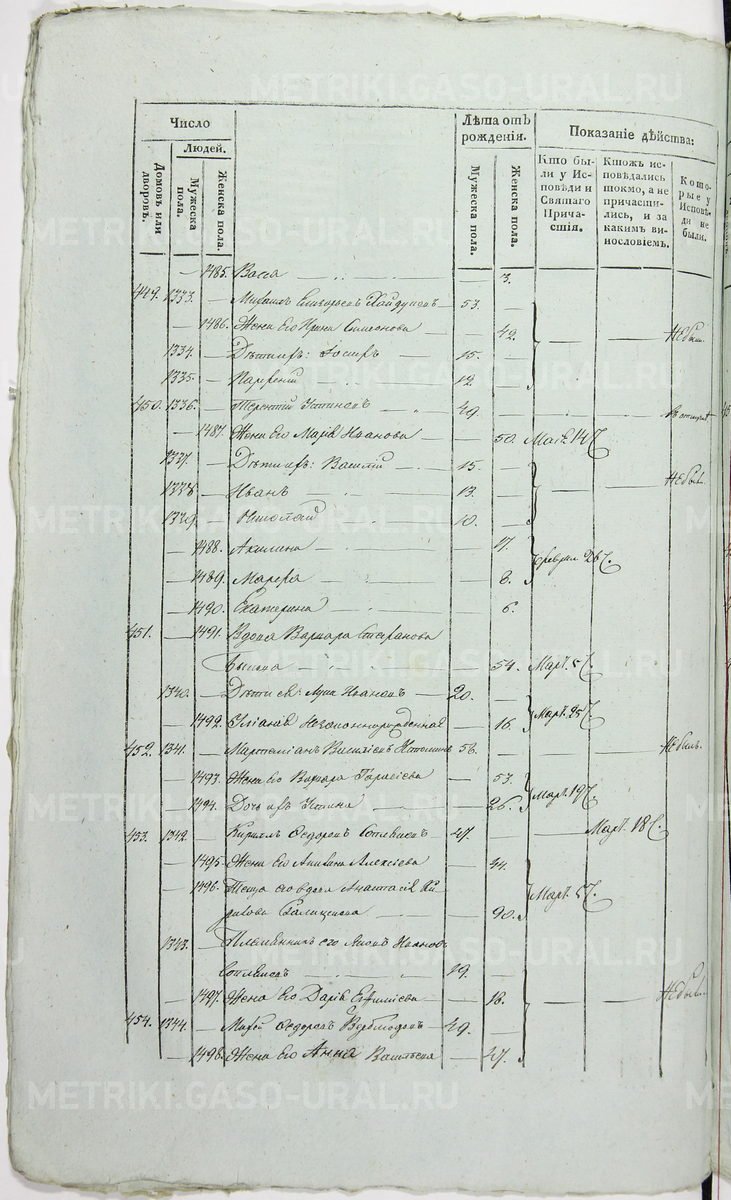 Число
Людей.
Домовъ или дворовъ.
Мужеска пола.
Женска пола.
Лѣта отъ рожденія.
Мужеска пола.
Женска пола.
Показаніе дѣйства:
Кто бы-
ли у Ис-
повѣди и
Святаго
Прича-
стія.
Ктожъ ис-
повѣдались
токмо, а не
причасти-
лись, и за
какимъ ви-
нословіемъ.
Кото-
рые у
Исповѣ-
ди не
были.
— 1485. Васса — 3.
449. 1333. — Михаилъ 53. —
— 1486. Жена Его Ирина Симеонова — 42. Не были
1334. — Дѣти ихъ: Іосифъ — 15. —
1335. — Парфеній 12. —
450. 1336. — Терентій Устиновъ — 49. —
— 1487. Жена Его Марія Иванова — 50. Мар. 14
1337. — Дѣти ихъ: Василій — 15. — Не был
1338. — Иванъ 13. —
1339. — Николай 10. —
— 1488. Акилина — 17.
— 1489. Марфа — 8. Феврал. 26
— 1490. Екатерина — 6.
451. — 1491. Вдова Варвара Стефанова
— 54. Март. 5
1340. — Дѣти ея: Лука Ивановъ — 20. —
— 1492. Уліанія Незаконнорожденная 16. Март. 25
452. 1341. — Василіевъ 56. — Не былъ.
— 1493. Жена его Варвара Гарасімова — 53.
— 1494. Дочь ихъ Устина — 26. Март. 19
453. 1342. — Кириллъ Ѳедоровъ 47. — Март. 18
— 1495. Жена Его Алексіева — 44.
— 1496. Теща его вдова Анастасія Ки-
рилова — 90. Март. 5
1343. — Племянникъ его Ивановъ
19. —
— 1497. Жена Его Дарія Евѳиміева — 18. Не были
454. 1344. — Ѳедоровъ 49. —
— 1498. Жена Его Анна Васильева — 47.
METRIKI.GASO-URAL.RU